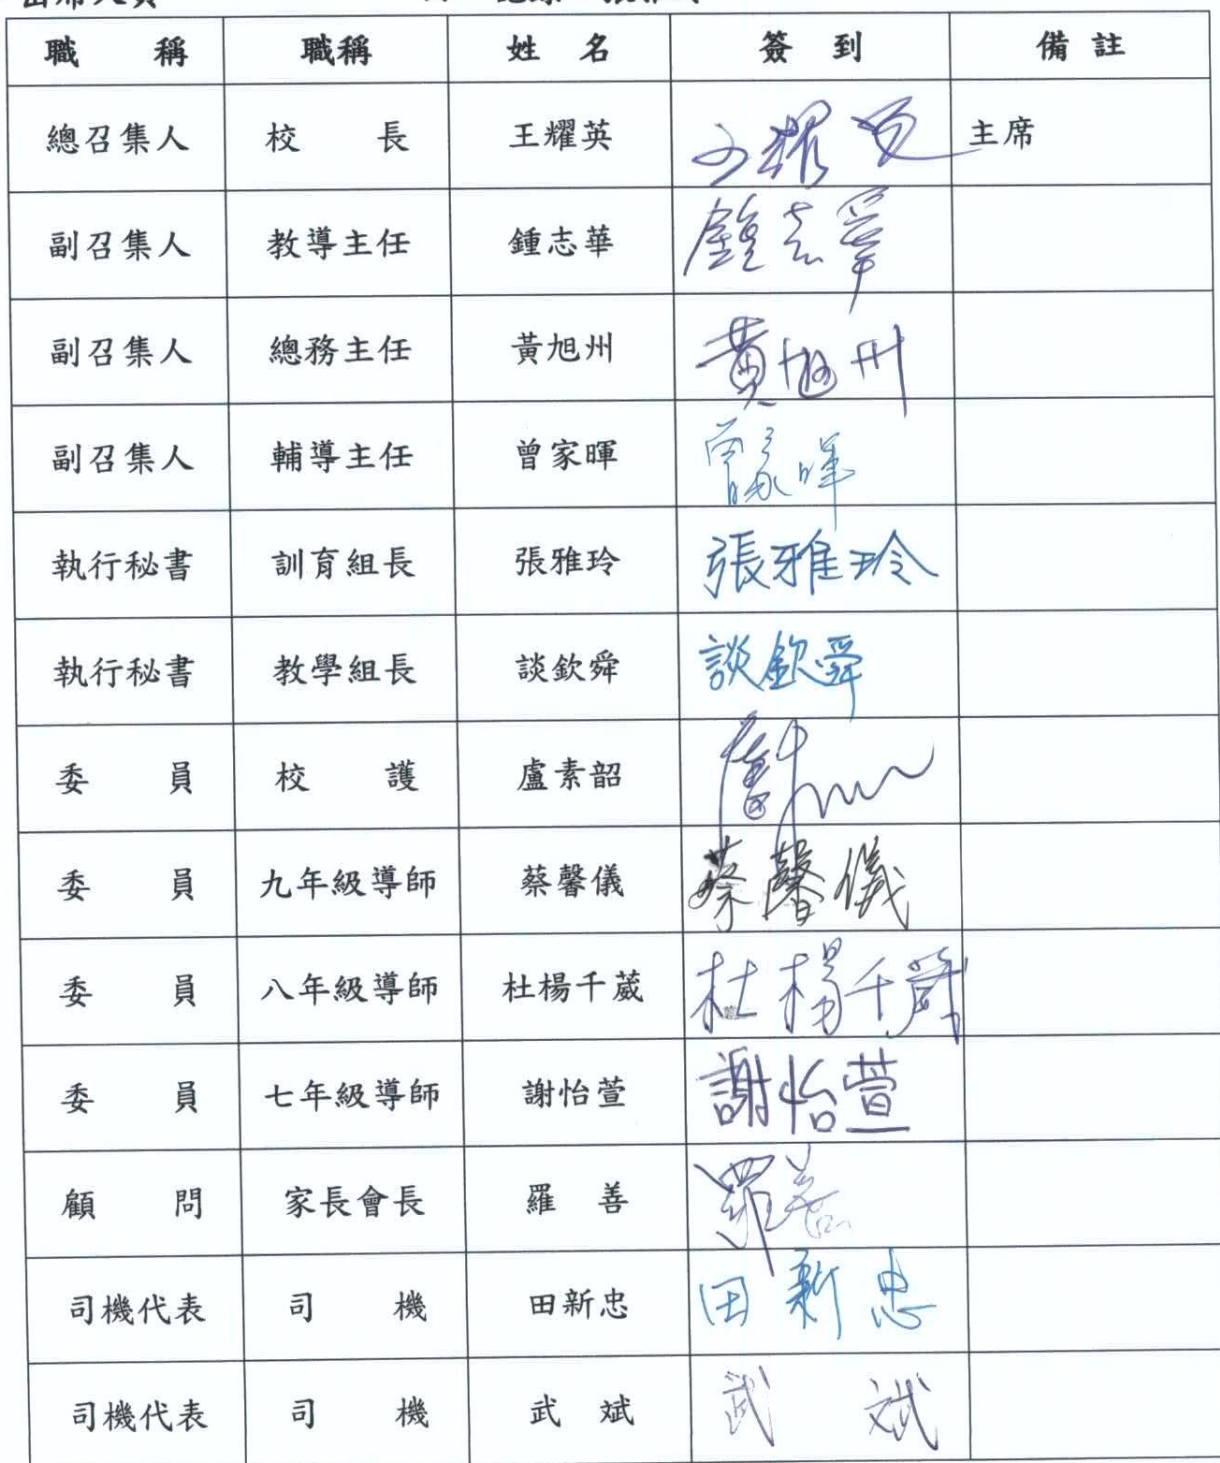 出席人員
職 稱 職稱 姓 名 簽 到 備 註
總召集人 校 長 王耀英 王耀英 主席
副召集人 教導主任 鍾志華 鍾志華
副召集人 總務主任 黃旭州 黃旭州
副召集人 輔導主任 曾家暉 曾家暉
執行秘書 訓育組長 張雅玲 張雅玲
執行秘書 教學組長 談欽舜 談欽舜
委 員 校 護 盧素韶
委 員 九年級導師 蔡馨儀 蔡馨儀
委 員 八年級導師 杜楊千葳 杜楊千葳
委 員 七年級導師 謝怡萱 謝怡萱
顧 問 家長會長 羅 善 羅善
司機代表 司 機 田新忠 田新忠
司機代表 司 機 武 斌 武 斌